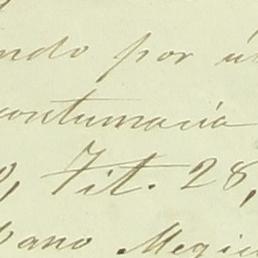 ndo por ú
contumacia
, Tit. 28,
pano Megic